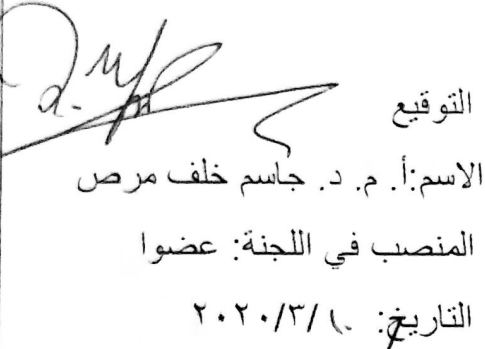 التوقيع
الاسم:أ. م. د. جاسم خلف مرص
المنصب في اللجنة: عضوا
التاريخ: ١٠/٣/٢٠٢٠